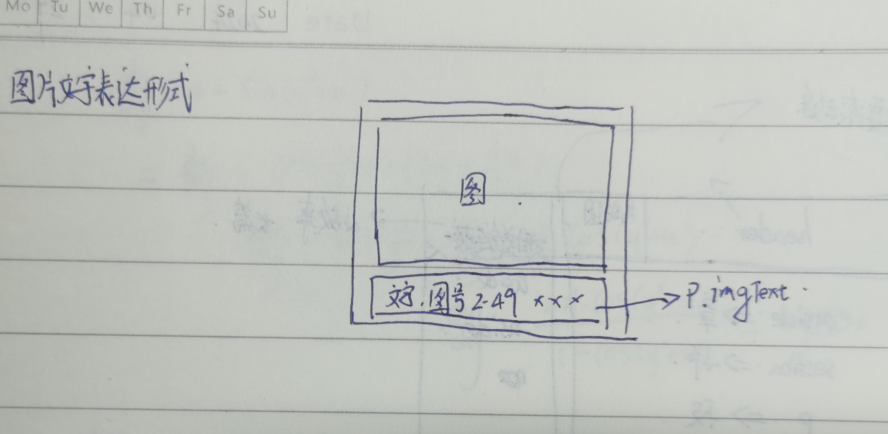 Mo Tu We Th Fr Sa Su
图片文字表达形式
图
文字.图号2-49 ×××
P.imgText.